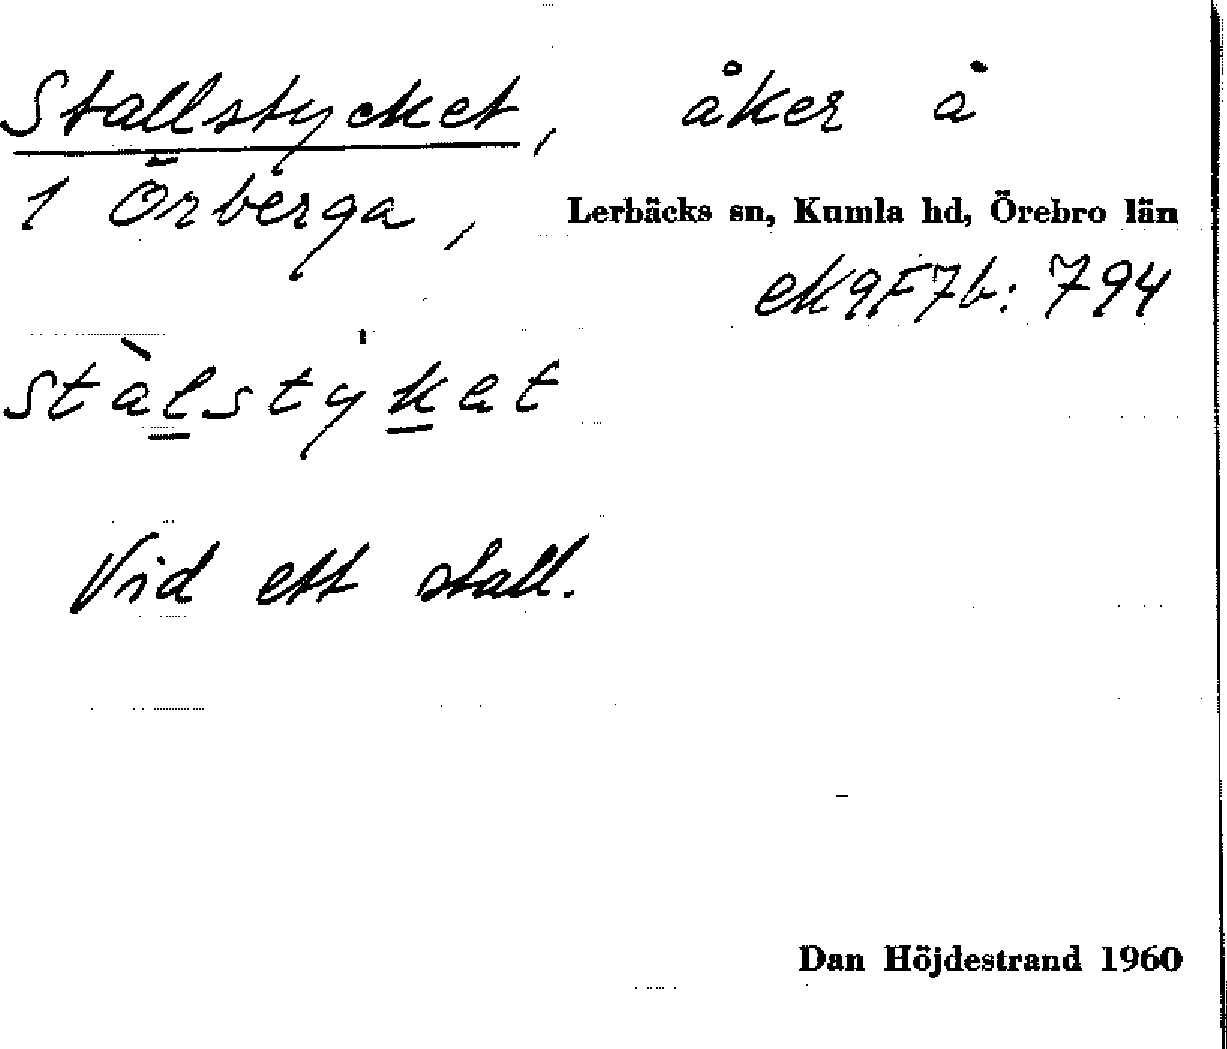 Stallstycket, åker å
1 Örberga, Lerbäcks sn, Kumla hd, Örebro län
ek9F7b: 794
stàlstýkat
Vid ett stall.
Dan Höjdestrand 1960